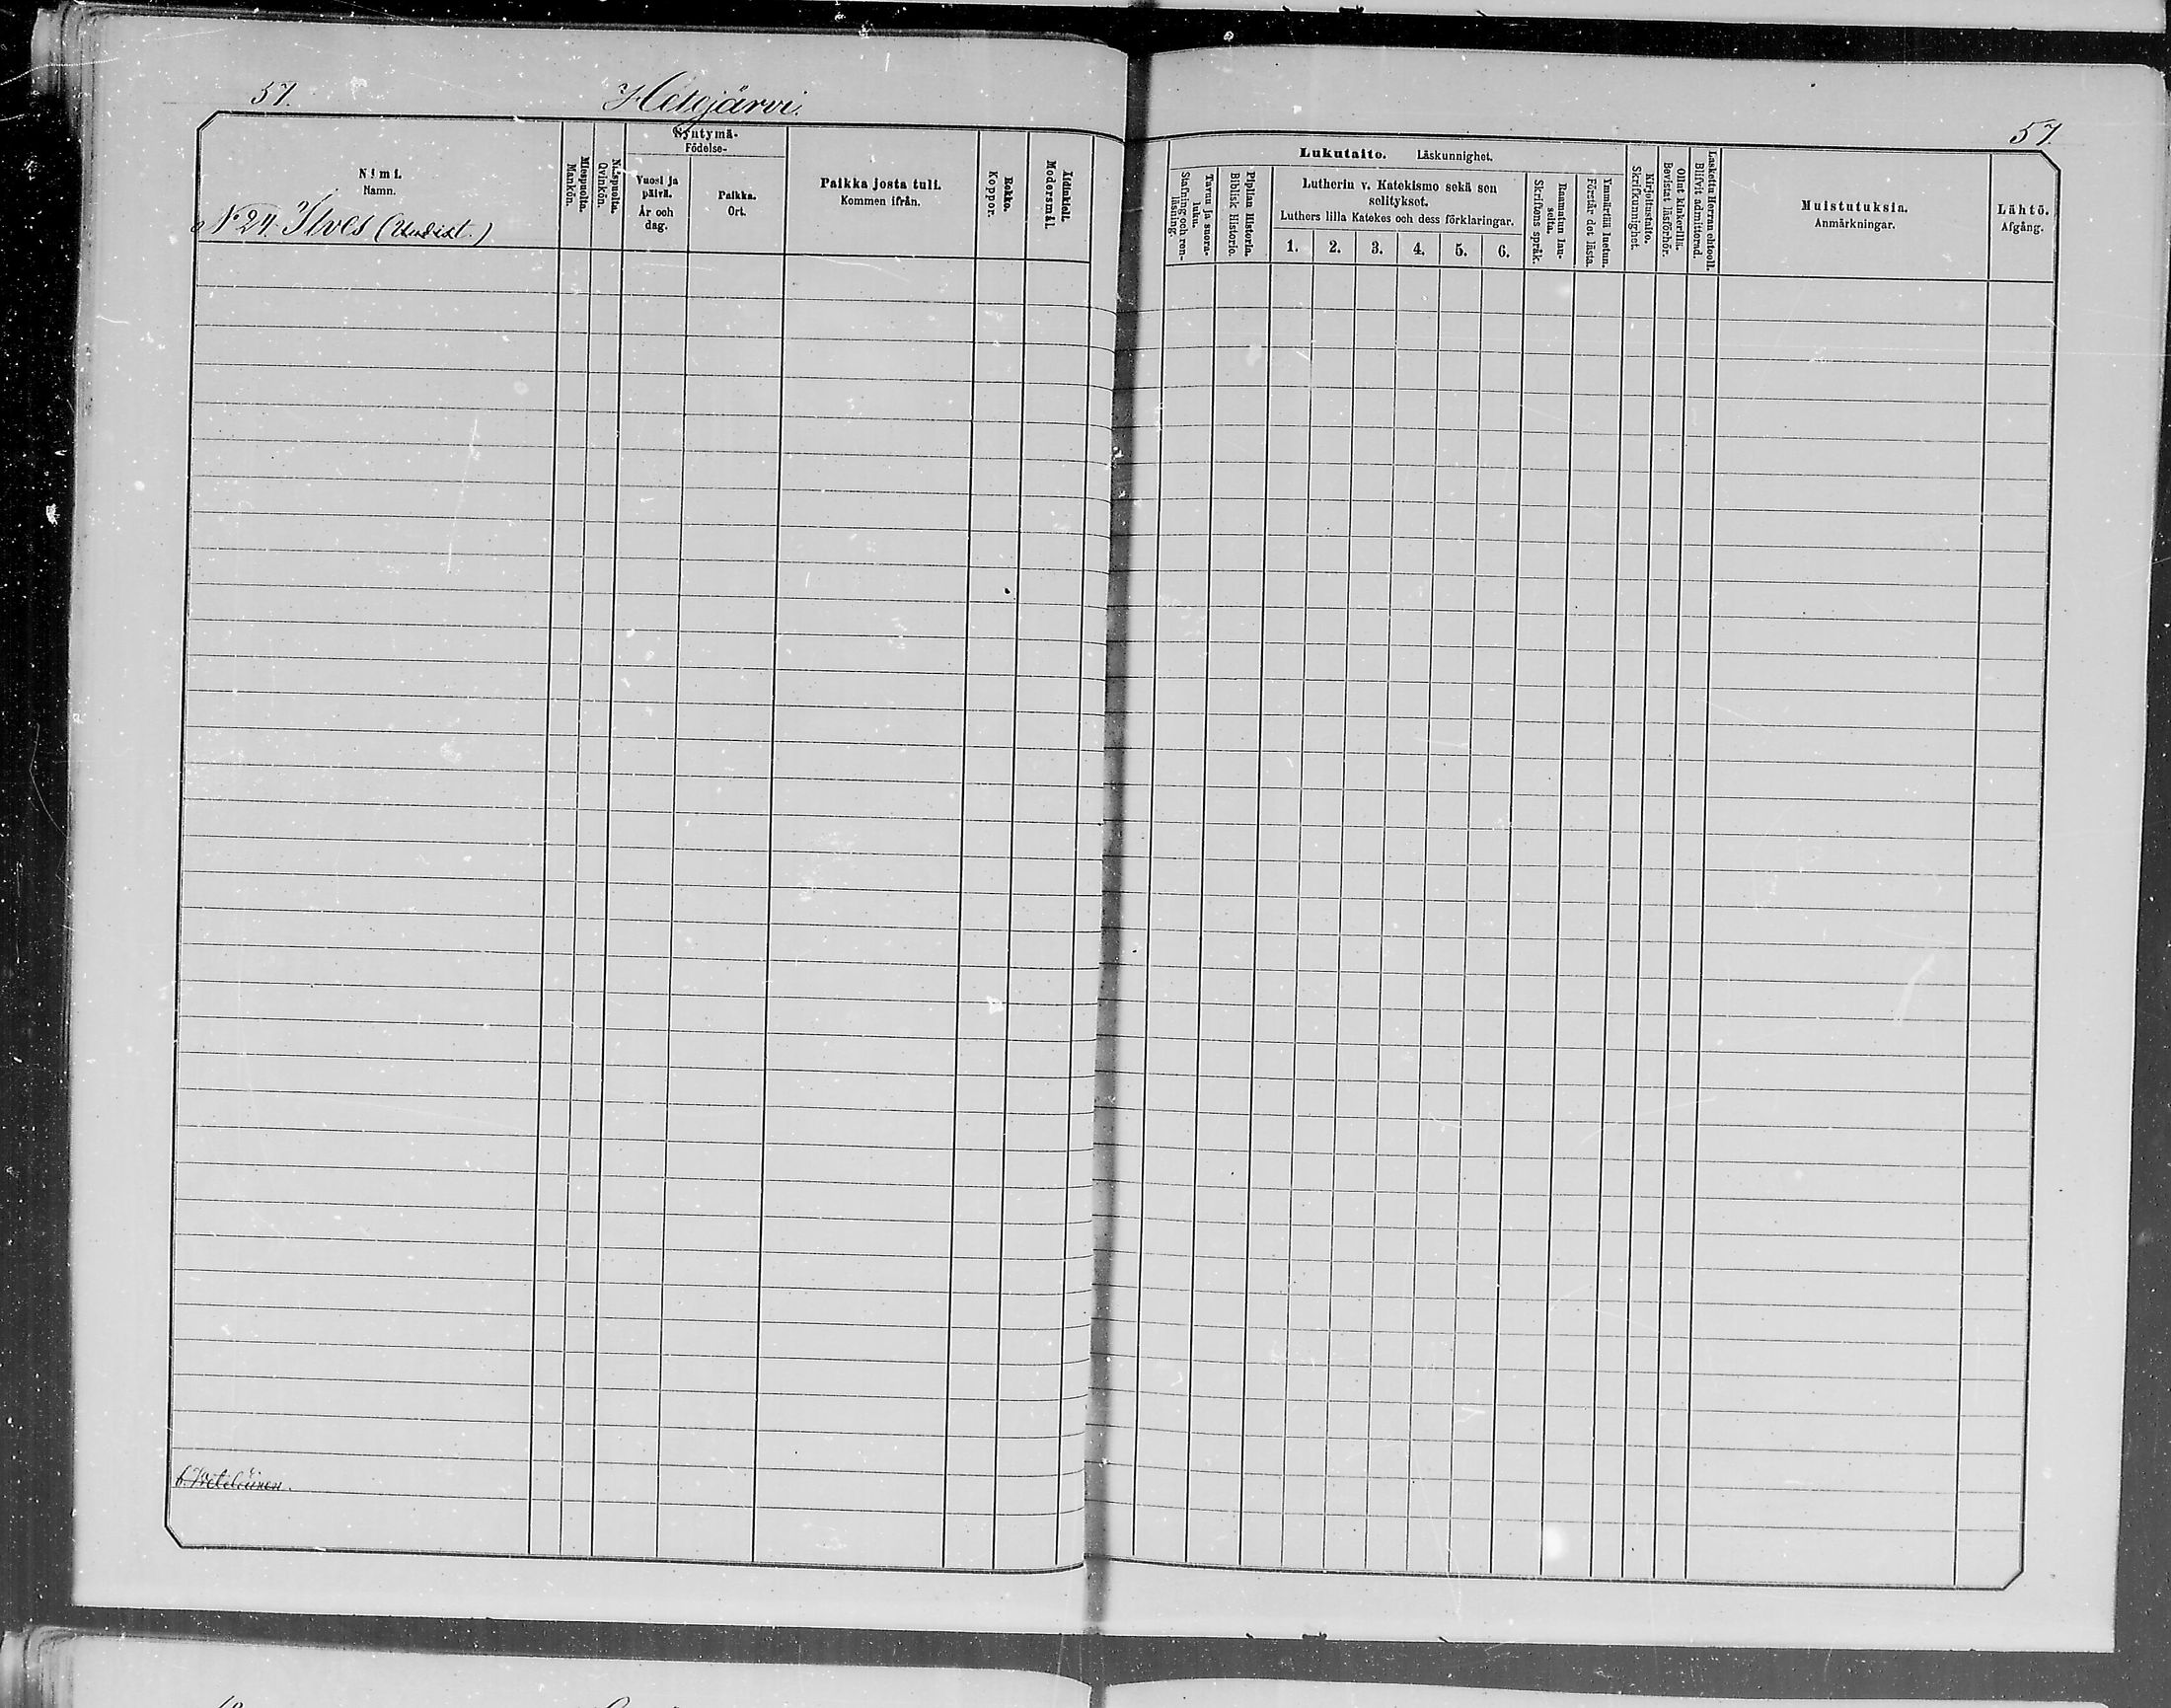 57.
Hetejärvi.
57.
Nimi.
Namn.
Miespuolta.
Mankön.
Naispuolta.
Qvinkön.
Syntymä-
Födelse-
Vuosi ja
päivä.
År och
dag.
Paikka.
Ort.
Paikka josta tuli.
Kommen ifrån.
Rokko.
Koppor.
Äidinkieli.
Modersmål.
Lukutaito. Läskunnighet.
Tavu ja suora-
luku.
Stafning och ren-
läsning.
Piplian Historia.
Biblisk Historie.
Lutherin v. Katekismo sekä sen
selitykset.
Luthers lilla Katekes och dess förklaringar.
1. 2. 3. 4. 5. 6.
Raamatun lau-
seita.
Skriftens språk.
Ymmärtää luetun.
Förstår det lästa.
Kirjoitustaito.
Skrifkunnighet.
Ollut kinkerillä.
Bevistat läsförhör.
Laskettu Herran ehtooll.
Blifvit admitterad.
Muistutuksia.
Anmärkningar.
Lähtö.
Afgång.
No 24. Ilves (Uudist.)